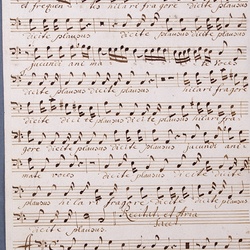 et frequen - tes hilari fragore dicite plausus
dicite plausus dicite plausus dicite plausus
jucundi ani ma
dicite plausus dicite plausus hilari fragore
dicite plausus dicite plausus hilari fra
gore dicite plausus dicite plausus jucundi ani
mate voces dicite plausus dicite plausus dicite
plausus hilari fragore dicite plausus
dicite plausus. Recitat: et Aria
tacet